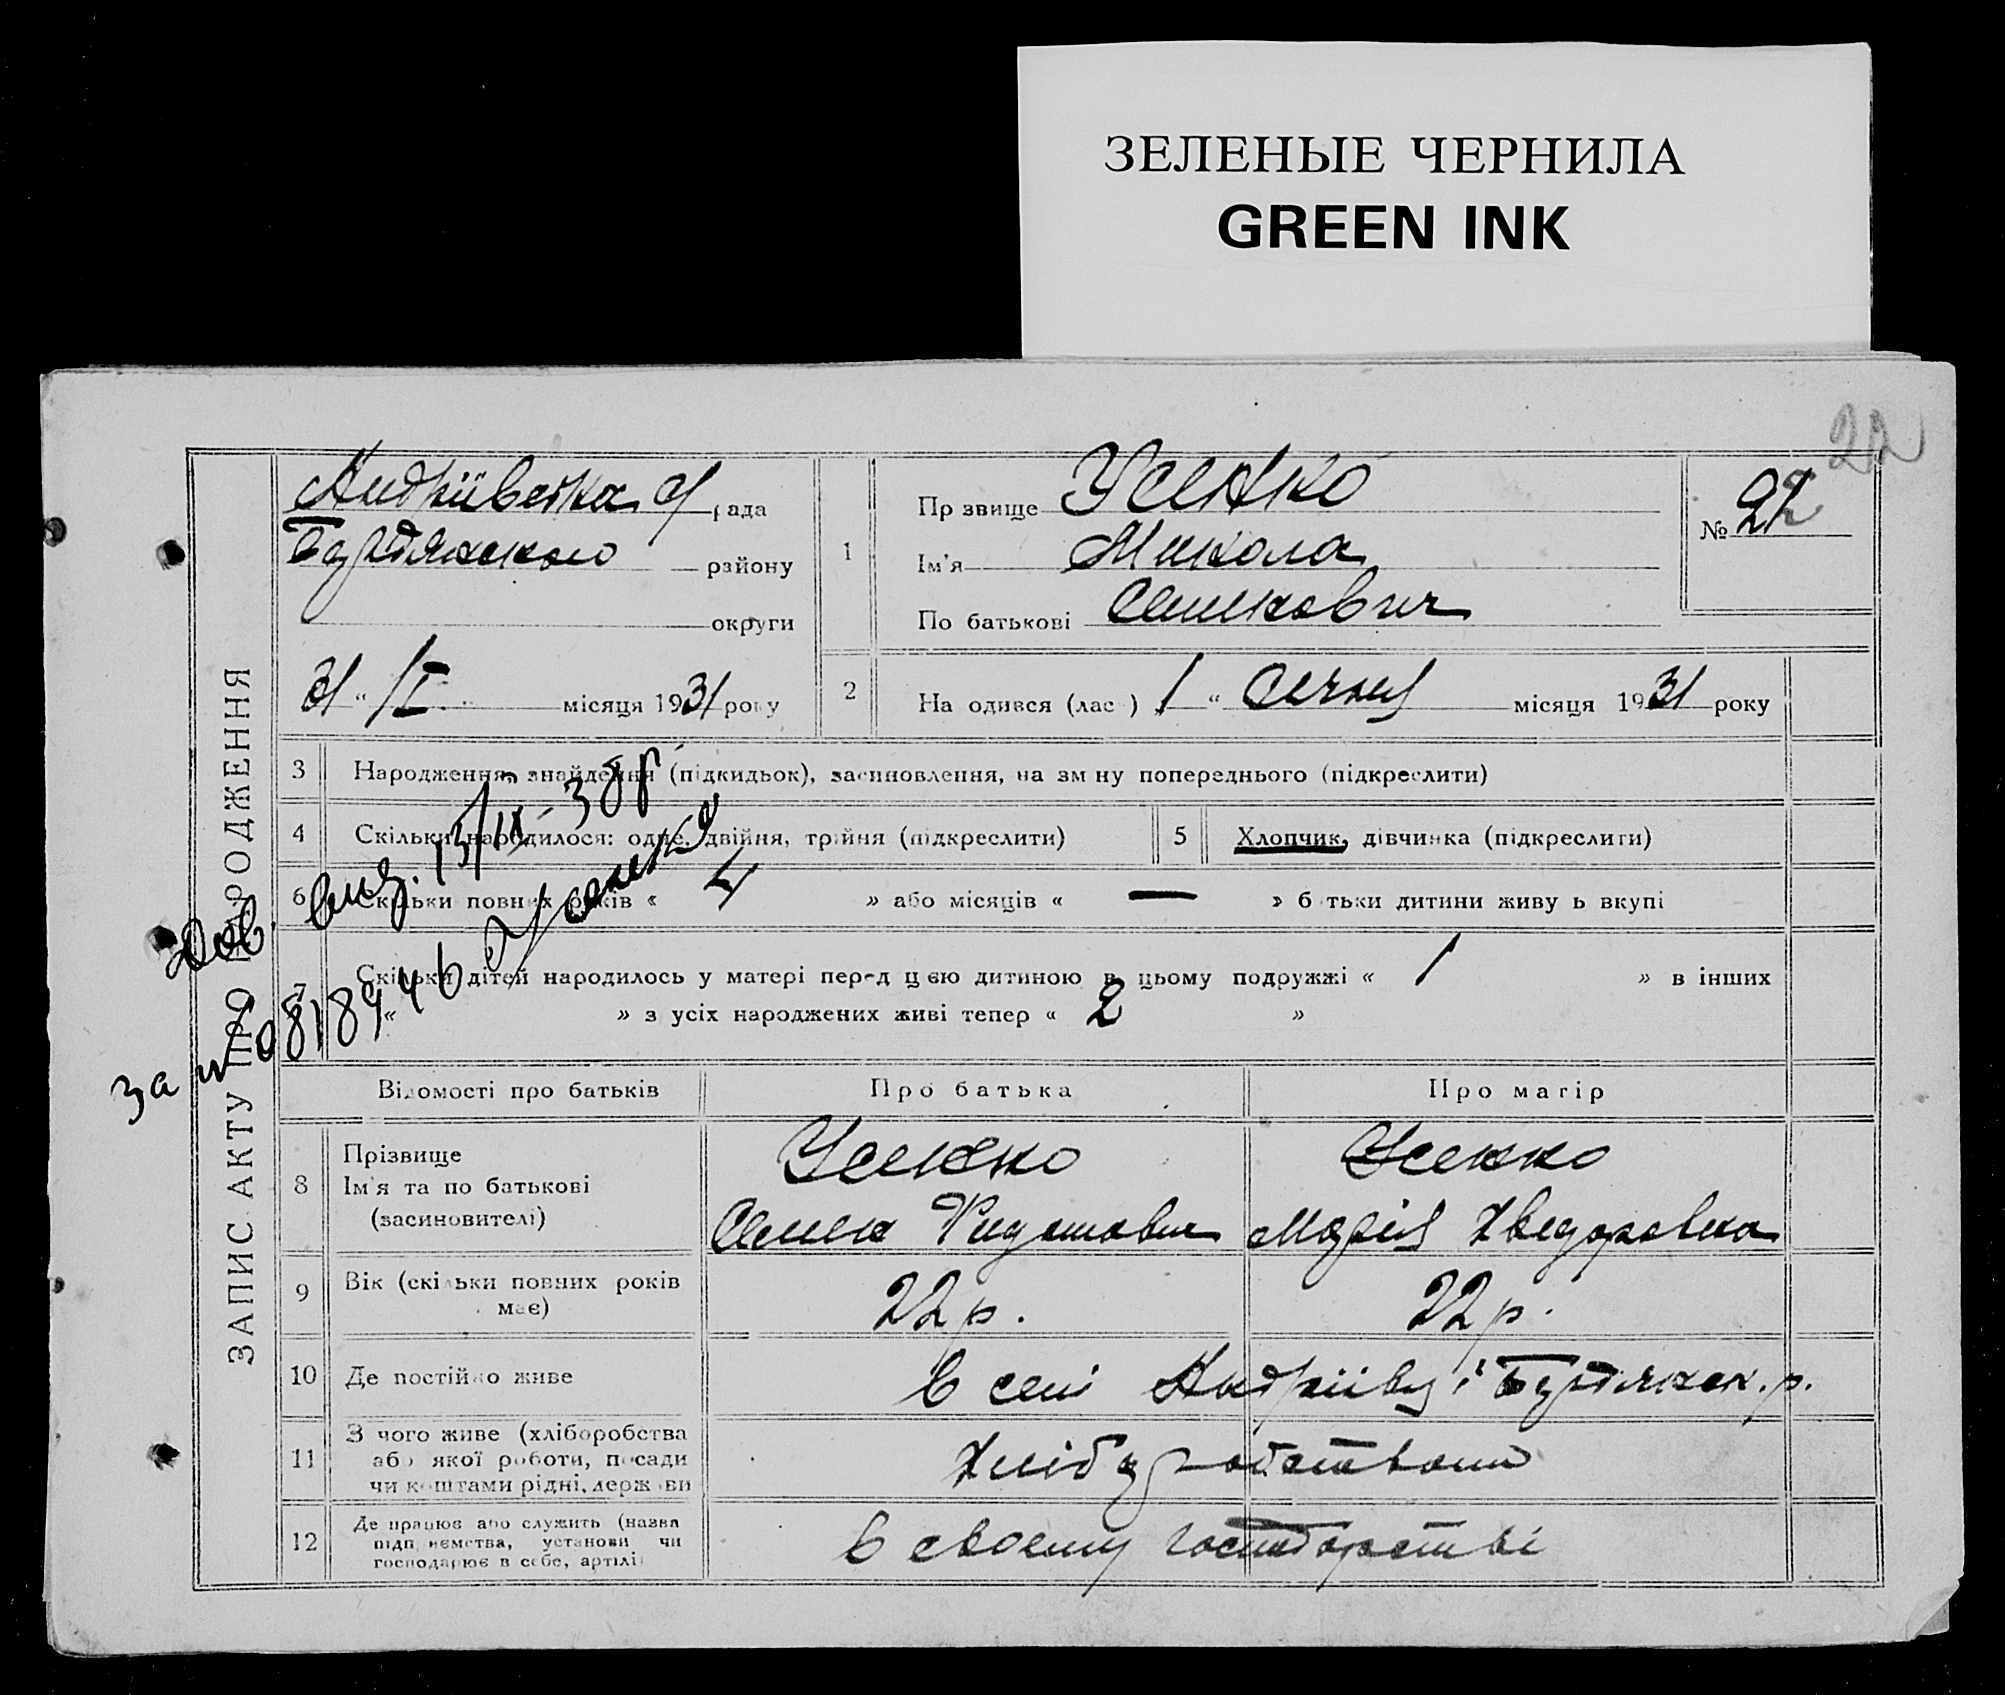 ЗЕЛЕНЫЕ ЧЕРНИЛА
GREEN INK
22
ЗАПИС АКТУ ПРО НАРОДЖЕННЯ
Андріївська с/рада
району
округи
31 " /I " місяця 1931 року
1
Прізвище Усенко
Ім'я Микола
По батькові Семенович
№ 22
2
Народився (лась) " 1 " Січня місяця 1931 року
3 Народження, знайдення (підкидьок), засиновлення, на зміну попереднього (підкреслити)
4 Скільки народилося: одне, двійня, трійня (підкреслити)
5 Хлопчик, дівчинка (підкреслити)
6 Скільки повних років « 4 » або місяців « — » батьки дитини живуть вкупі
7 Скільки дітей народилось у матері перед цією дитиною в цьому подружжі « 1 » в інших
« » з усіх народжених живі тепер « 2 »
Дов. вид. 13/IX-38р.
за № 0818446
Відомості про батьків
Про батька
Про матір
8 Прізвище
Ім'я та по батькові
(засиновителі)
Усенко
Семен
Усенко
Марія Хведоровна
9 Вік (скільки повних років має)
22 р.
22 р.
10 Де постійно живе
в селі Андріївці
11 З чого живе (хліборобства
або якої роботи, посади
чи коштами рідні, держави
Хліборобством
12 Де працює або служить (назва
підприємства, установи чи
господарює в себе, артілі)
в своєму господарстві